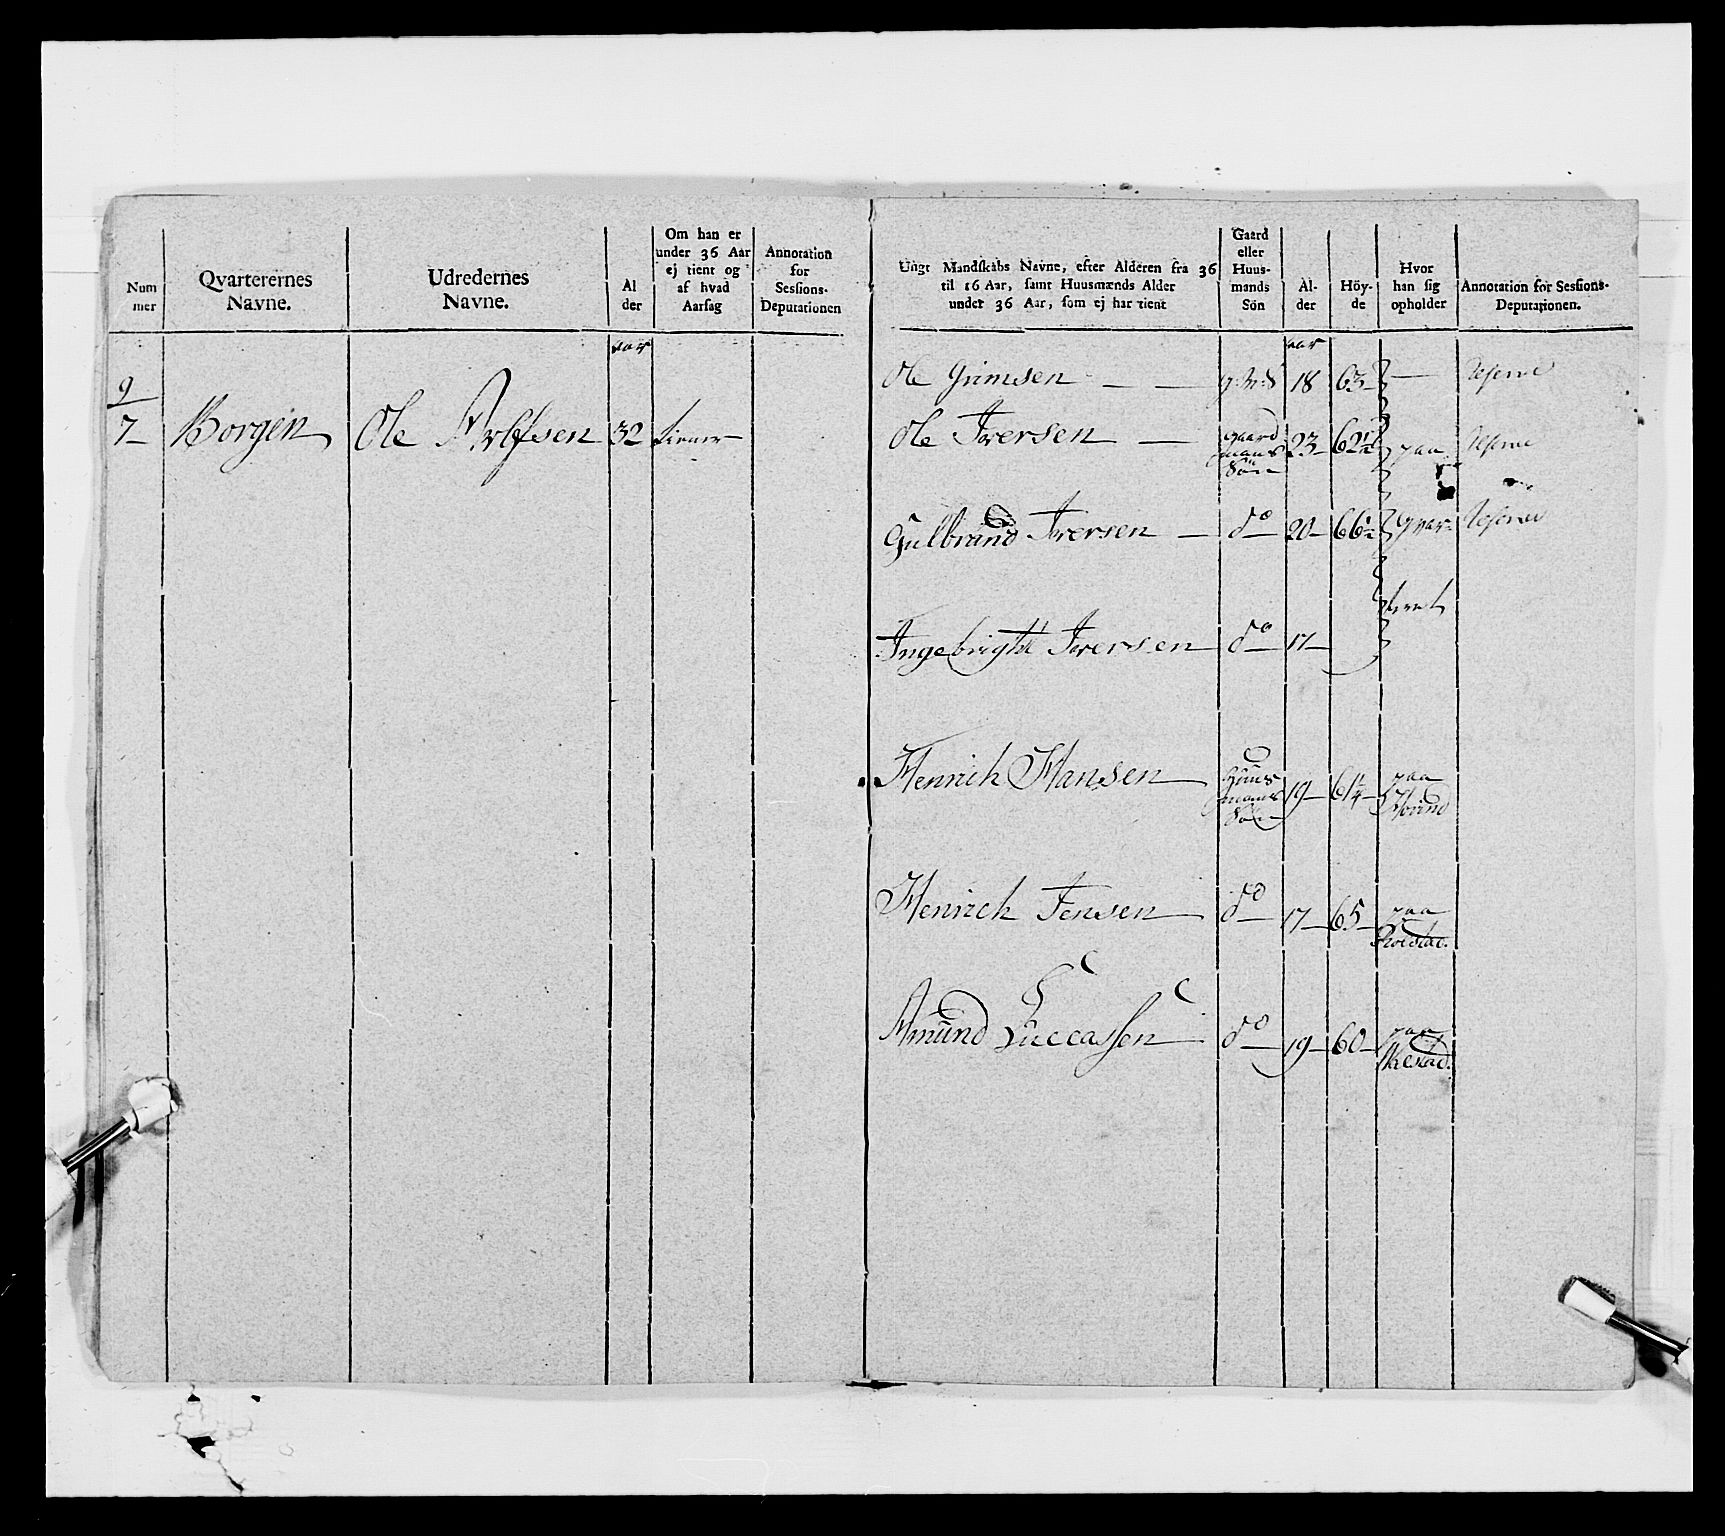 Num
mer
Qvarterernes
Navne.
Udredernes
Navne.
Al
der
Om han er
under 36 Aar
ej tient og
af hvad
Aarsag
Annotation
for
Sessions-
Deputationen
Ungt Mandskabs Navne, efter Alderen fra 36
til 16 Aar, samt Huusmænds Alder
under 36 Aar, som ej har tient
Gaard
eller
Huus-
mands
Sön
Al-
der
Höy-
de
Hvor
han sig
opholder
Annotation for Sessions-
Deputationen.
aar
9
7 Borgen Ole Arlfsen 32 tiener
aar
Ole Grimsen — — g:M:S 18 63 — Reserve
Ole Iversen — gaard
mans
Sön 23 62 1/2 paa Reserve
Gulbrand Iversen — do 20 66 1/2 qvar- Reserve
teret
Ingebright Iversen do 17
Henrich Hansen Huus
mans
Sön 19 61 1/4 paa
Hovind
Henrich Jensen do 17 65 paa
Amund Luccassen do 19 60 paa